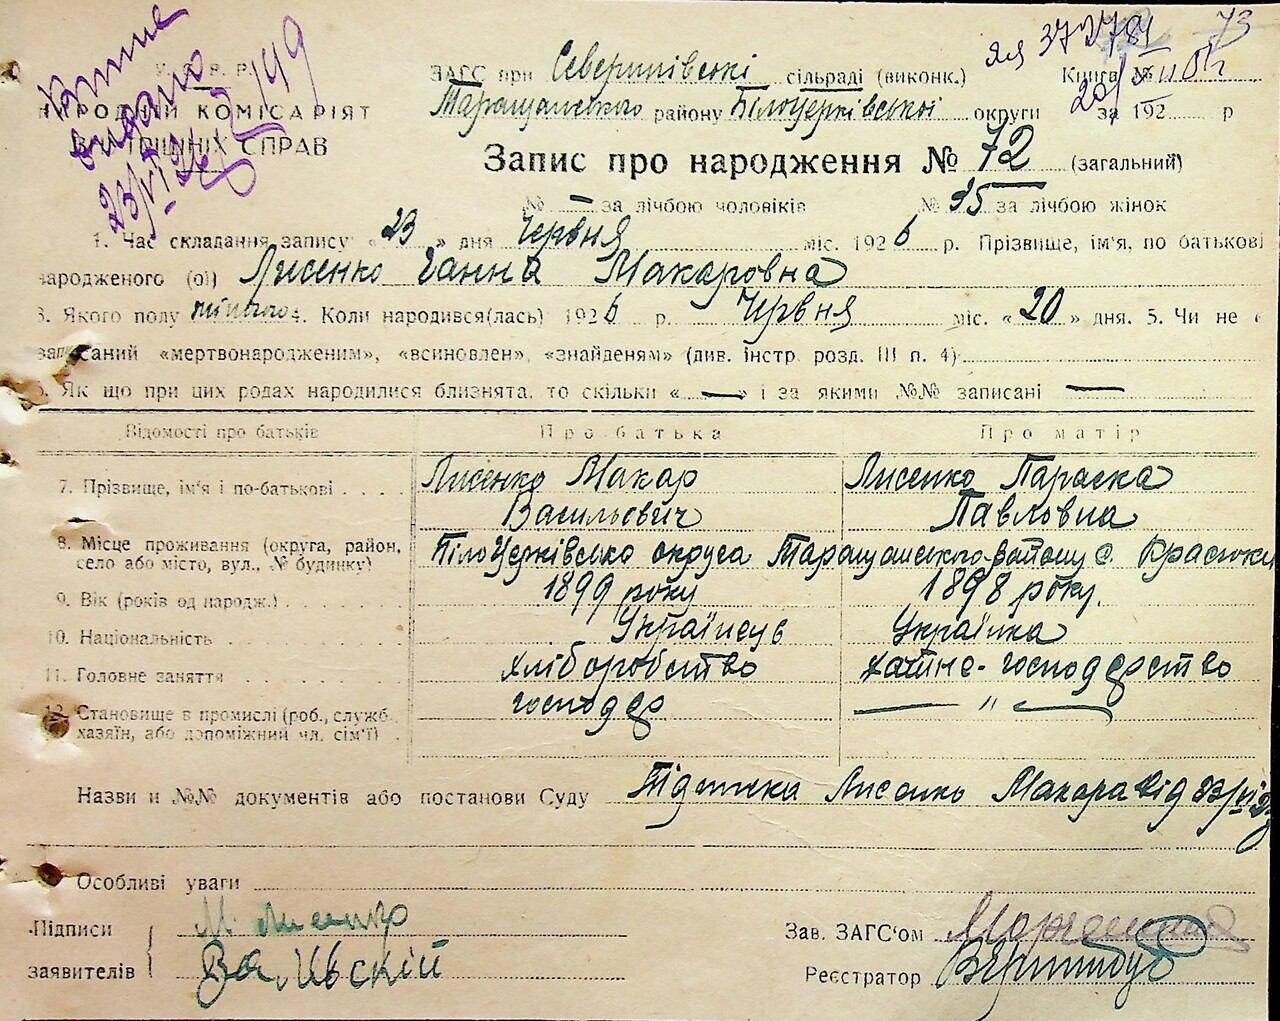 Витяг
видано
23/VI 26
У. С. Р. Р.
НАРОДНІЙ КОМІСАРІЯТ
ВНУТРІШНІХ СПРАВ
73
ЗАГС при Северинівські сільраді (виконк.) Книга №
Таращанського району Білоцерківської округи за 192 р
Запис про народження № 72 (загальний)
№ — за лічбою чоловіків № 35 за лічбою жінок
1. Час складання запису « 23 » дня Червня міс. 1926 р. Прізвище, ім'я, по батькові
народженого (ої) Лисенко Ганна Макаровна
3. Якого полу жіночого 4. Коли народився(лась) 1926 р. Червня міс. « 20 » дня. 5. Чи не є
записаний «мертвонародженим», «всиновлен», «знайденям» (див. інстр. розд. III п. 4)
6. Як що при цих родах народилися близнята, то скільки « — » і за якими №№ записані —
Відомості про батьків Про батька Про матір
7. Прізвище, ім'я і по-батькові . . . . Лисенко Макар Лисенко Параска
Васильович Павловна
8. Місце проживання (округа, район, село або місто, вул., № будинку) Білоцерківсько округа Таращанського району с.
9. Вік (років од народж.) 1899 року 1898 року.
10. Національність Українець Українка
11. Головне заняття хліборобство хатнє-господарство
12. Становище в промислі (роб., служб. хазяїн, або допоміжний чл. сім'ї) . господар — " —
Назви и №№ документів або постанови Суду Підписка Лисенко Макара від 23/VI 26
Особливі уваги
Підписи М Лисенко Зав. ЗАГС'ом
заявителів Реєстратор